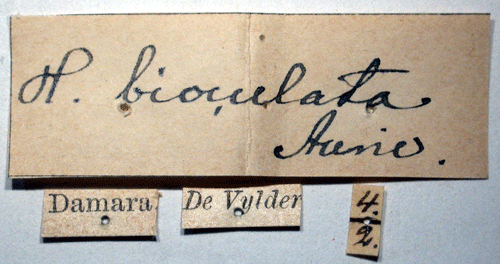 H. bioculata
Auriv.
Damara
De Vylder
4.
2.